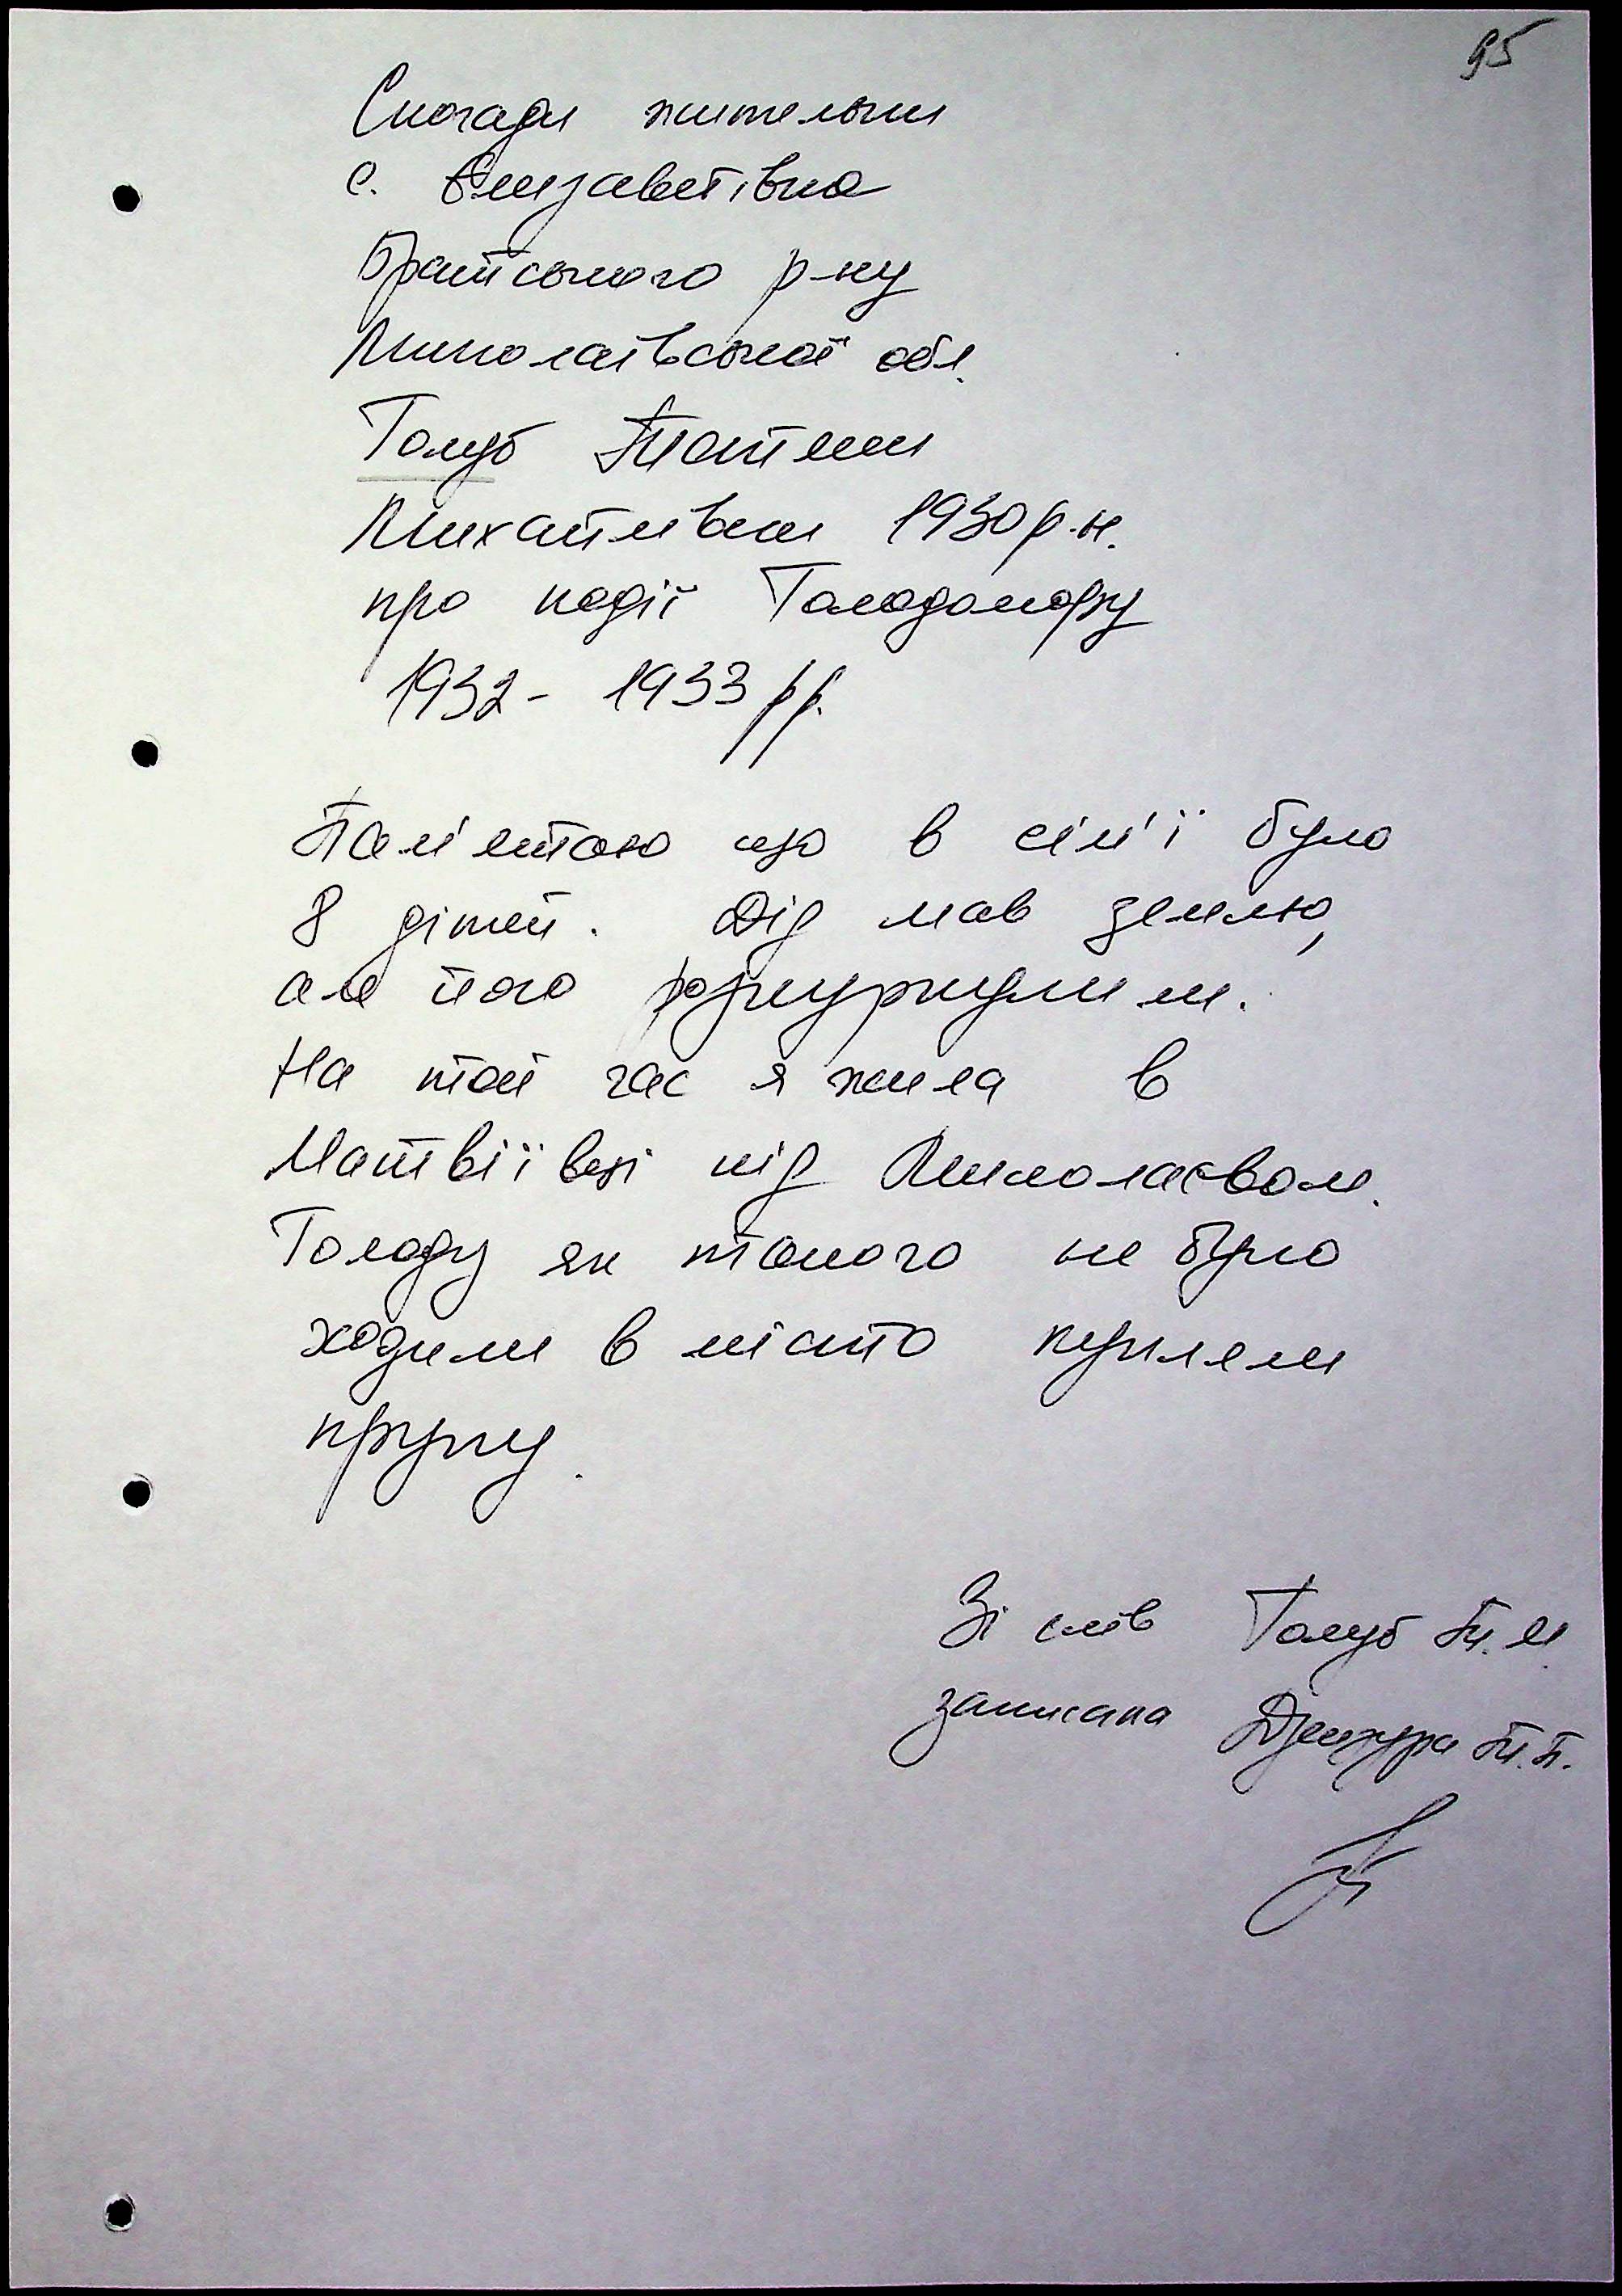 95
Спогади жительки
с. Єлизаветівка
Братського р-ну
Миколаївської обл.
Голуб Тетяни
Михайлівни 1930 р.н.
про події Голодомору
1932 - 1933 рр.
Пам'ятаю що в сім'ї було
8 дітей. Дід мав землю,
але його розкуркулили.
На той час я жила в
Матвіївці під Миколаєвом.
Голоду як такого не було
ходили в місто купляли
крупу.
Зі слів Голуб Т.М.
записала Джечура Т.П.